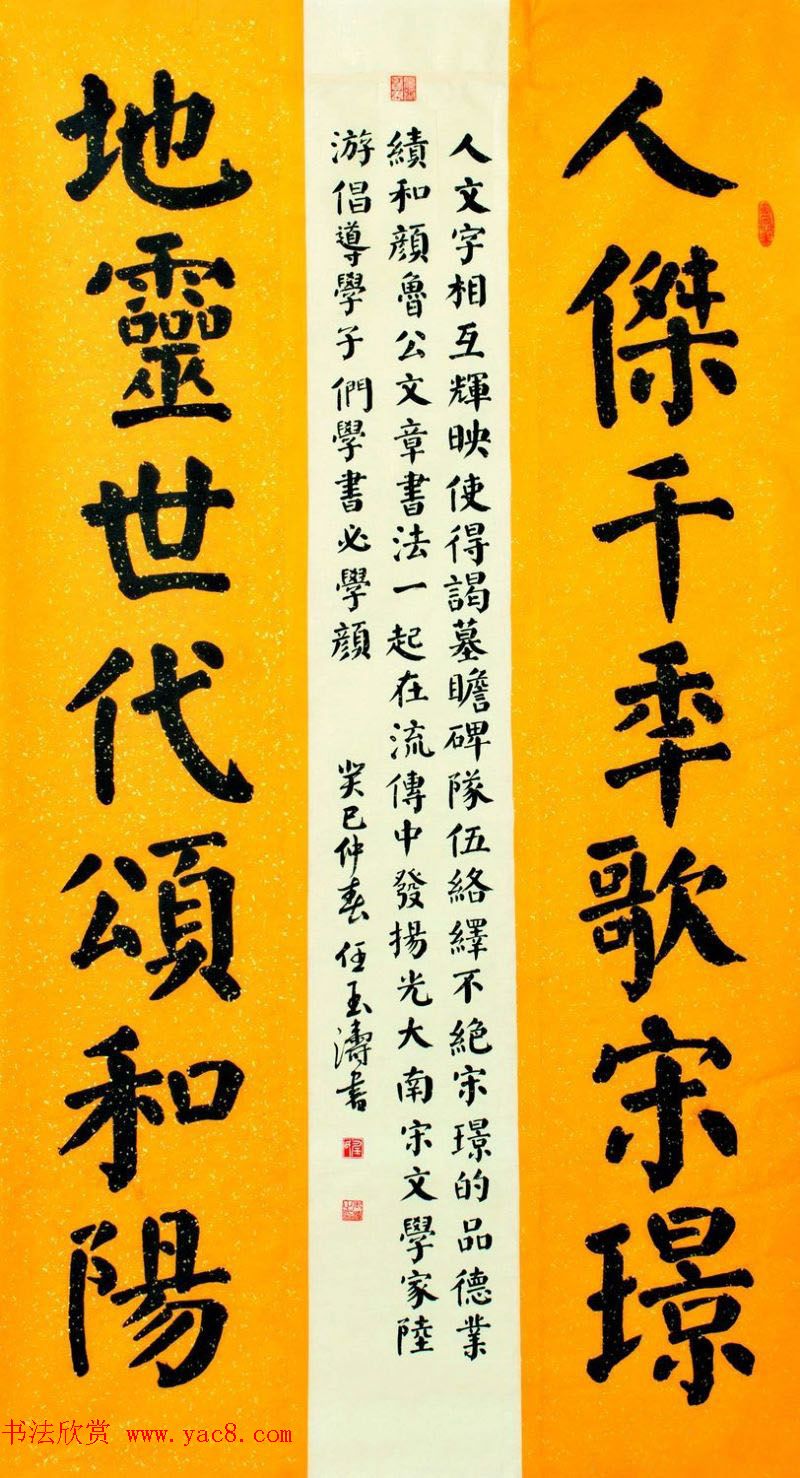 人傑千秊歌宋璟
人文字相互輝映使得謁墓瞻碑隊伍絡繹不絕宋璟的品德業
績和顔魯公文章書法一起在流傳中發揚光大南宋文學家陸
游倡導學子們學書必學顔
癸巳仲春任玉濤書
地靈世代頌和陽
书法欣赏 www.yac8.com